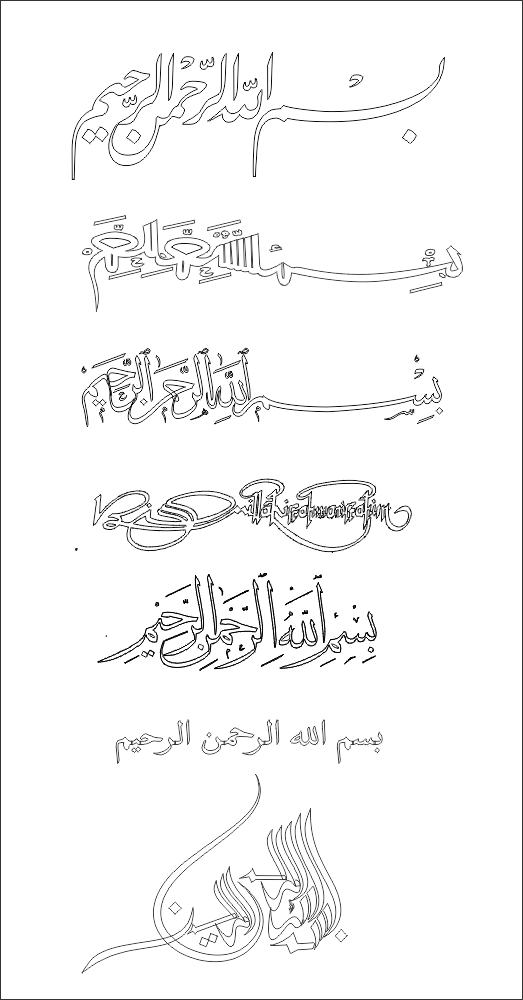 بسم الله الرحمن الرحيم
بسم الله الرحمن الرحيم
بِسْمِ اللّٰهِ الرَّحْمٰنِ الرَّحِيمِ
Bismillahirrahmanirrahim
بِسْمِ اللّٰهِ الرَّحْمٰنِ الرَّحِيمِ
بسم الله الرحمن الرحيم